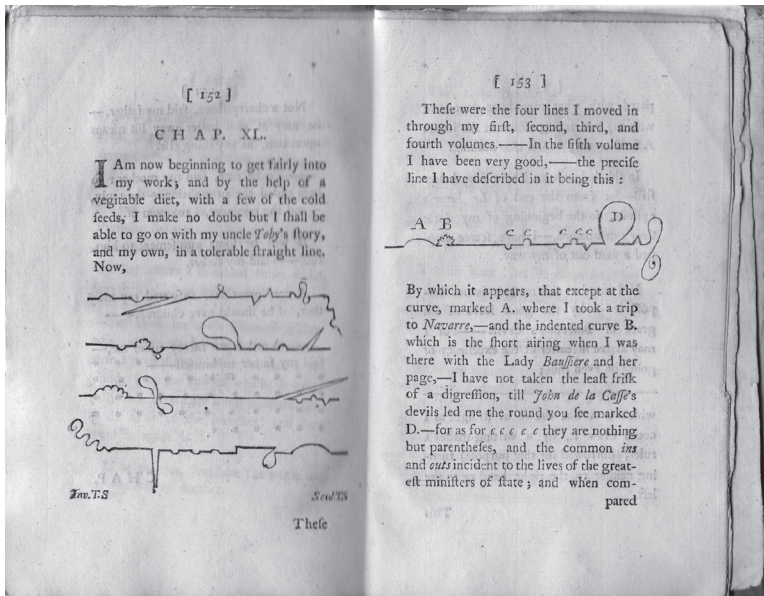 [ 152 ]
CHAP. XL.
I Am now beginning to get fairly into
my work; and by the help of a
vegitable diet, with a few of the cold
ſeeds, I make no doubt but I ſhall be
able to go on with my uncle Toby's ſtory,
and my own, in a tolerable ſtraight line.
Now,
Inv.T.S
Scul T.S
Theſe
[ 153 ]
Theſe were the four lines I moved in
through my firſt, ſecond, third, and
fourth volumes.——In the fifth volume
I have been very good,——the preciſe
line I have deſcribed in it being this :
A B c c c c c D
By which it appears, that except at the
curve, marked A. where I took a trip
to Navarre,—and the indented curve B.
which is the ſhort airing when I was
there with the Lady Bauſſiere and her
page,—I have not taken the leaſt friſk
of a digreſſion, till John de la Caſſe's
devils led me the round you ſee marked
D.—for as for c c c c c they are nothing
but parentheſes, and the common ins
and outs incident to the lives of the great-
eſt miniſters of ſtate; and when com-
pared